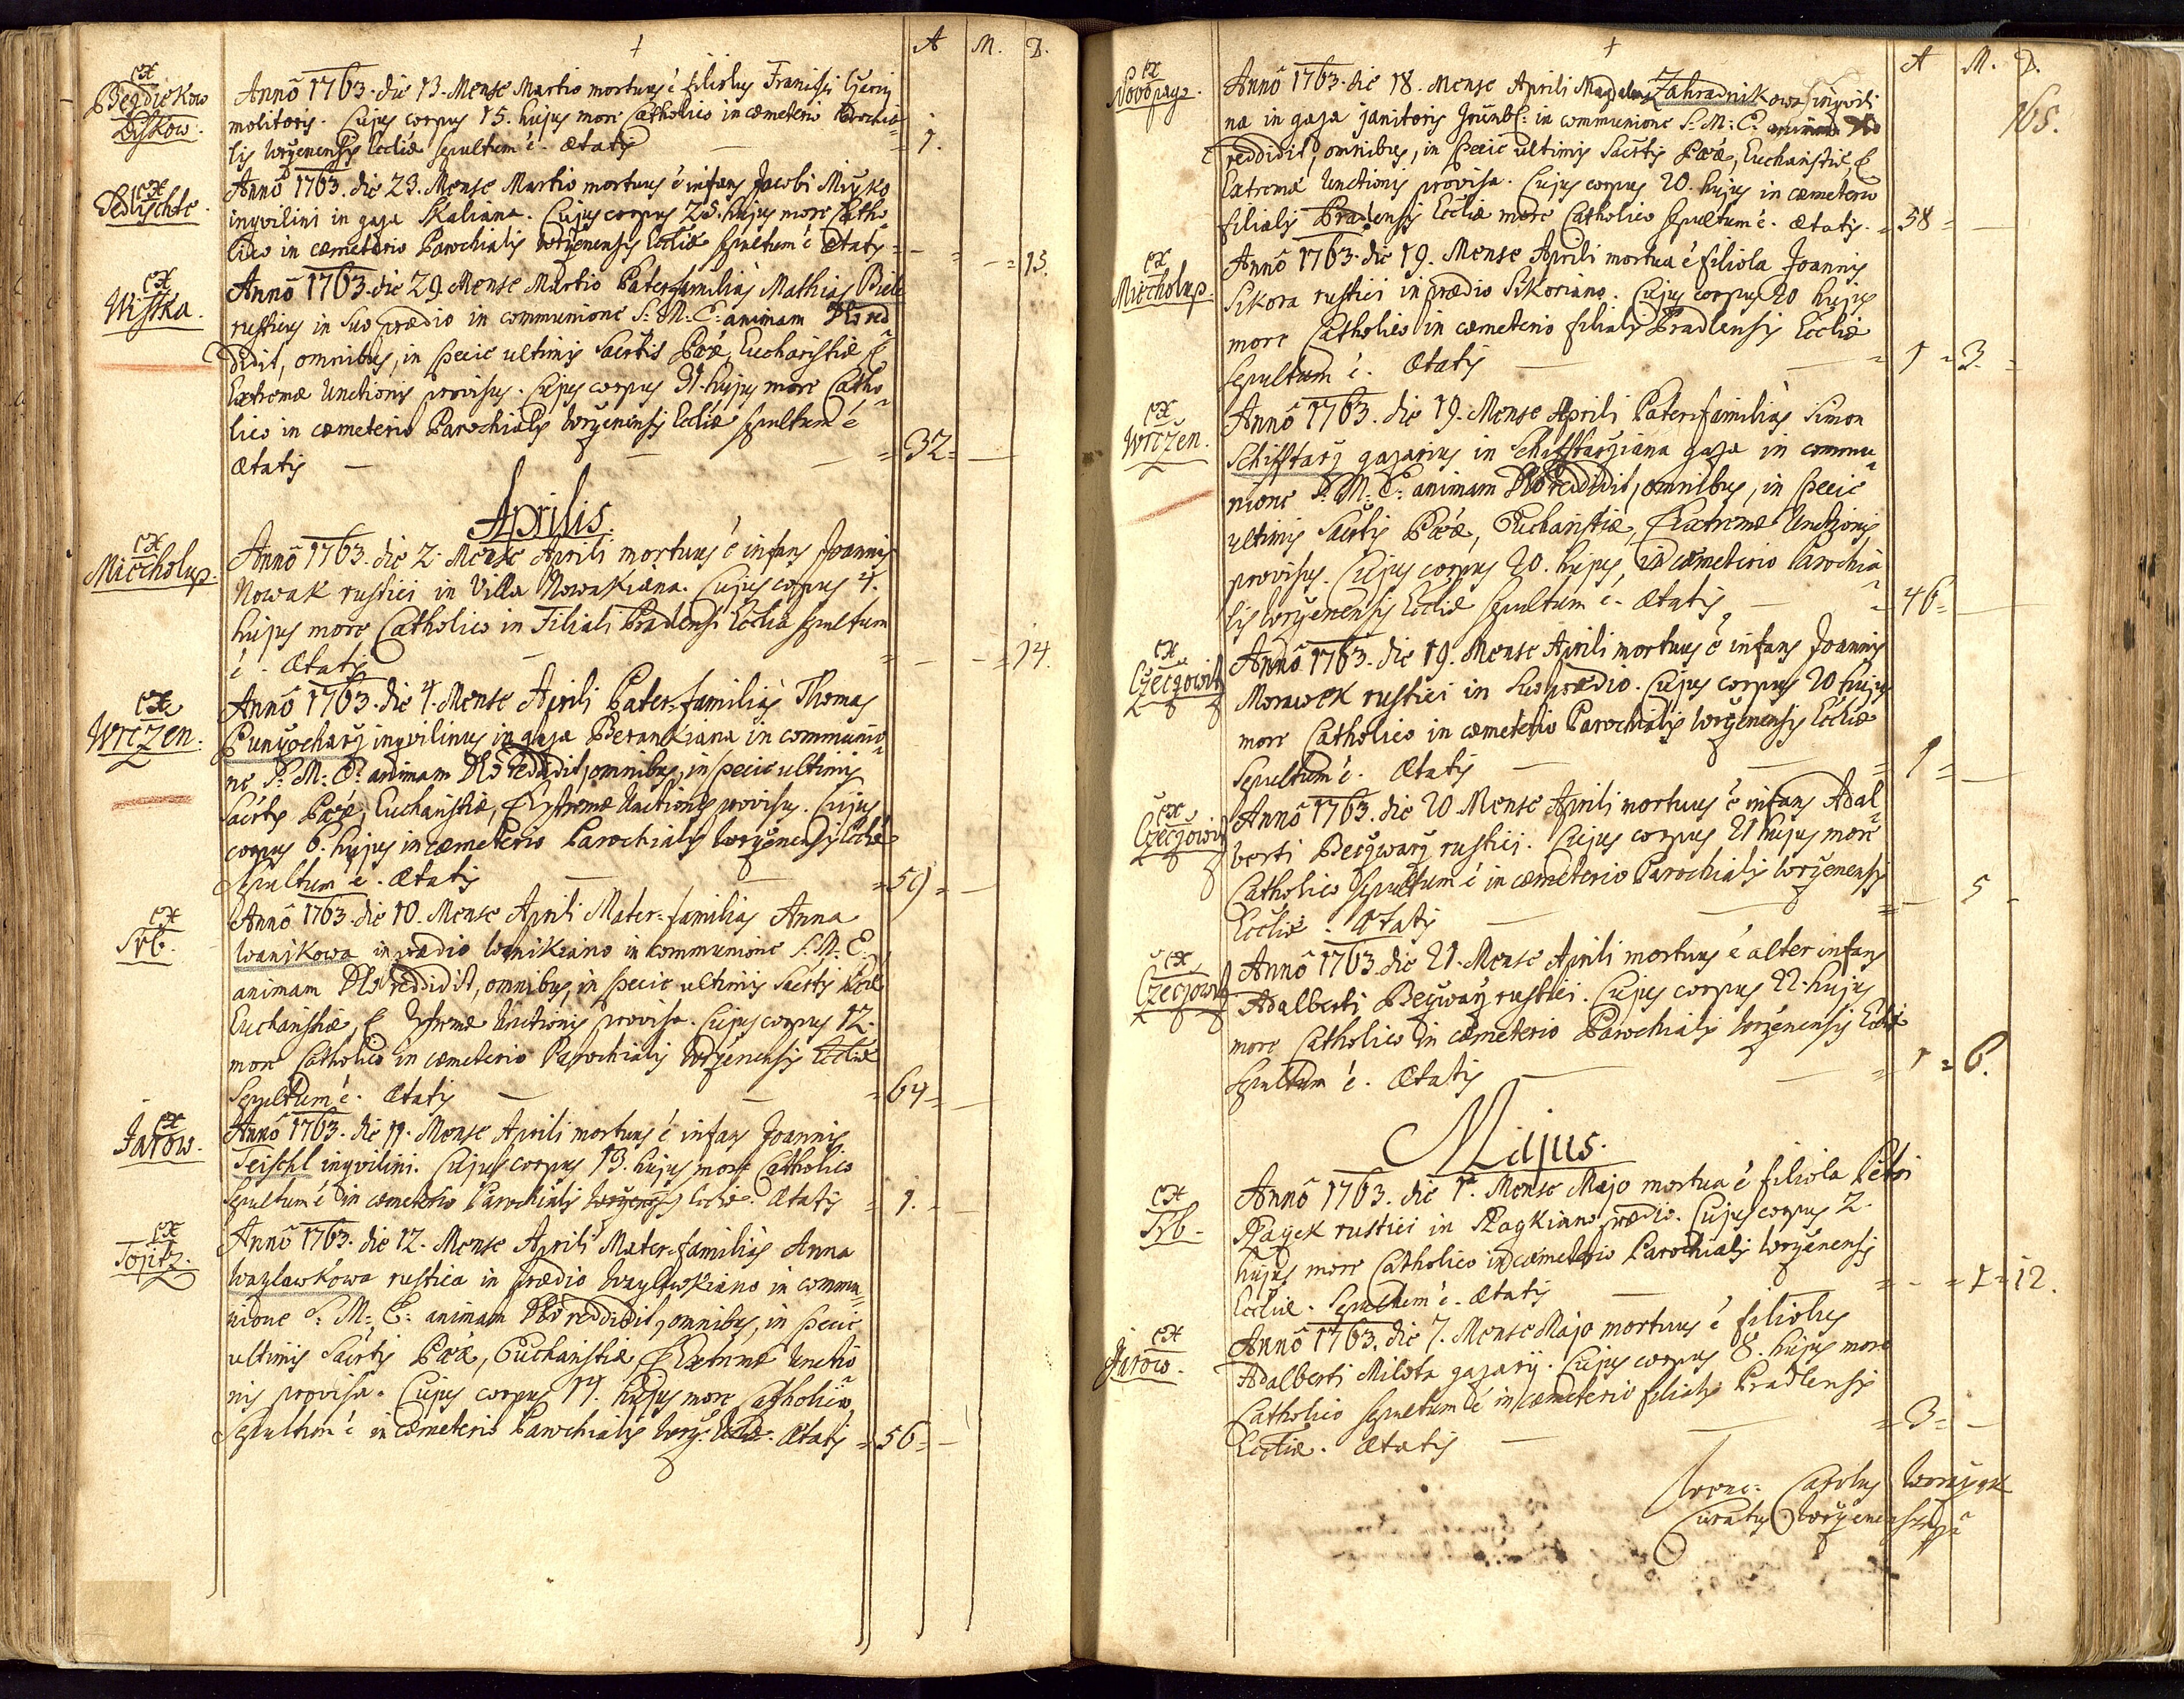 A M. D.
ex
Begdiekow
Liskow.
Annô 1763. die 13. Mense Martio mortuus ē filiolus Francisci
molitoris. Cujus corpus 15. hujus more Catholico in cœmeterio Parochia
lis Wrczenensis Eccliæ sepultum ē. Ætatis = 1.
ex
Sedlischte.
Annô 1763. die 23. Mense Martio mortuus ē infans Jacobi Miczko
inqvilini in gaza Skaliana. Cujus corpus 25. hujus more Catho
lico in cœmeterio Parochialis Wrczenensis Eccliæ sepultum ē Ætatis = 13.
ex
Wiska.
Annô 1763. die 29. Mense Martio Pater-familias Mathias
rusticus in Suo prædio in communione S. M. E. animam Deo red
didit, omnibus, in specie ultimis Sacrtis Pœæ, Eucharistiæ, &
Extremæ Unctionis provisus. Cujus corpus 31. hujus more Catho
lico in cœmeterio Parochialis Wrczenensis Eccliæ sepultum ē
Ætatis = 32 =
Aprilis.
ex
Miecholup.
Annô 1763. die 2. Mense Aprili mortuus ē infans Joannis
Nowak rustici in Villa Nowakiana. Cujus corpus 4.
hujus more Catholico in Filiali Pradlensi Ecclia sepultum
ē. Ætatis = 14.
ex
Wrczen.
Annô 1763. die 4. Mense Aprili Pater-familias Thomas
Punczocharz inqvilinus in gaza Berankiana in communio
ne S. M. E. animam Deo reddidit, omnibus, in specie ultimis
Sacrtis Pœæ, Eucharistiæ, & Extremæ Unctionis provisus. Cujus
corpus 6. hujus in cœmeterio Parochialis Wrczenensis Eccliæ
Sepultum ē. Ætatis = 59 =
ex
Srb.
Annô 1763. die 10. Mense Aprili Mater-familias Anna
Wanikowa in prædio Wanikiano in communione S. M. E.
animam Deo reddidit, omnibus, in specie ultimis Sacrtis Pœæ
Eucharistiæ, & Extremæ Unctionis provisa. Cujus corpus 12.
more Catholico in cœmeterio Parochialis Wrczenensis Eccliæ
Sepultum ē. Ætatis = 64 =
ex
Jarow.
Annô 1763. die 11. Mense Aprili mortuus ē infans Joannis
Teischl inqvilini. Cujus corpus 13. hujus more Catholico
sepultum ē in cœmeterio Parochialis Wrczenensis Eccliæ. Ætatis = 1. =
ex
Tojitz.
Annô 1763. die 12. Mense Aprili Mater-familias Anna
Wazlawkowa rustica in prædio Wazlawkiano in commu
nione S. M. E. animam Deo reddidit, omnibus, in specie
ultimis Sacrtis Pœæ, Eucharistiæ, & Extremæ Unctio
nis provisa. Cujus corpus 14. hujus more Catholico
Sepultum ē in cœmeterio Parochialis Wrcz. Eccliæ. Ætatis = 56 =
A M. D.
165.
ex
Novopag.
Annô 1763. die 18. Mense Aprili Magdalena Zahradnikowa inqvili
na in gaza janitoris Grünb: in communione S. M. E. animam Deo
reddidit, omnibus, in specie ultimis Sacrtis Pœæ, Eucharistiæ, &
Extremæ Unctionis provisa. Cujus corpus 20. hujus in cœmeterio
filialis Pradlensis Eccliæ more Catholico sepultum ē. Ætatis. = 58 =
ex
Miecholup.
Annô 1763. die 19. Mense Aprili mortua ē filiola Joannis
Sikora rustici in prædio Sikoriano. Cujus corpus 20 hujus
more Catholico in cœmeterio filialis Pradlensis Eccliæ
sepultum ē. Ætatis = 1 = 3. =
ex
Wrczen.
Annô 1763. die 19. Mense Aprili Pater-familias Simon
Schifftarz gazarius in Schifftarziana gaza in commu
nione S. M. E. animam Deo reddidit, omnibus, in specie
ultimis Sacrtis Pœæ, Eucharistiæ, & Extremæ Unctionis
provisus. Cujus corpus 20. hujus, in cœmeterio Parochia
lis Wrczenensis Eccliæ sepultum ē. Ætatis = 46 =
ex
Czeczowitz
Annô 1763. die 19. Mense Aprili mortuus ē infans Joannis
Morawek rustici in Suo prædio. Cujus corpus 20 hujus
more Catholico in cœmeterio Parochialis Wrczenensis Eccliæ
Sepultum ē. Ætatis = 1 =
ex
Czeczowitz
Annô 1763. die 20 Mense Aprili mortuus ē infans Adal
berti Beczwarz rustici. Cujus corpus 21 hujus more
Catholico sepultum ē in cœmeterio Parochialis Wrczenensis
Eccliæ. Ætatis = 5 -
ex
Czeczowitz
Annô 1763. die 21. Mense Aprili mortuus ē alter infans
Adalberti Beczwarz rustici. Cujus corpus 22. hujus
more Catholico in cœmeterio Parochialis Wrczenensis Eccliæ
sepultum ē. Ætatis = 1 = 6.
Majus.
ex
Srb.
Annô 1763. die 1. Mense Majo mortua ē filiola Petri
rustici in prædio. Cujus corpus 2.
hujus more Catholico in cœmeterio Parochialis Wrczenensis
Eccliæ. Sepultum ē. Ætatis = - = 1 = 12.
ex
Jarow.
Annô 1763. die 7. Mense Majo mortuus ē filiolus
Adalberti Milota gazarij. Cujus corpus 8. hujus more
Catholico sepultum ē in cœmeterio filialis Pradlensis
Eccliæ. Ætatis = 3 = -
Carolus
Curatus Wrczenensis